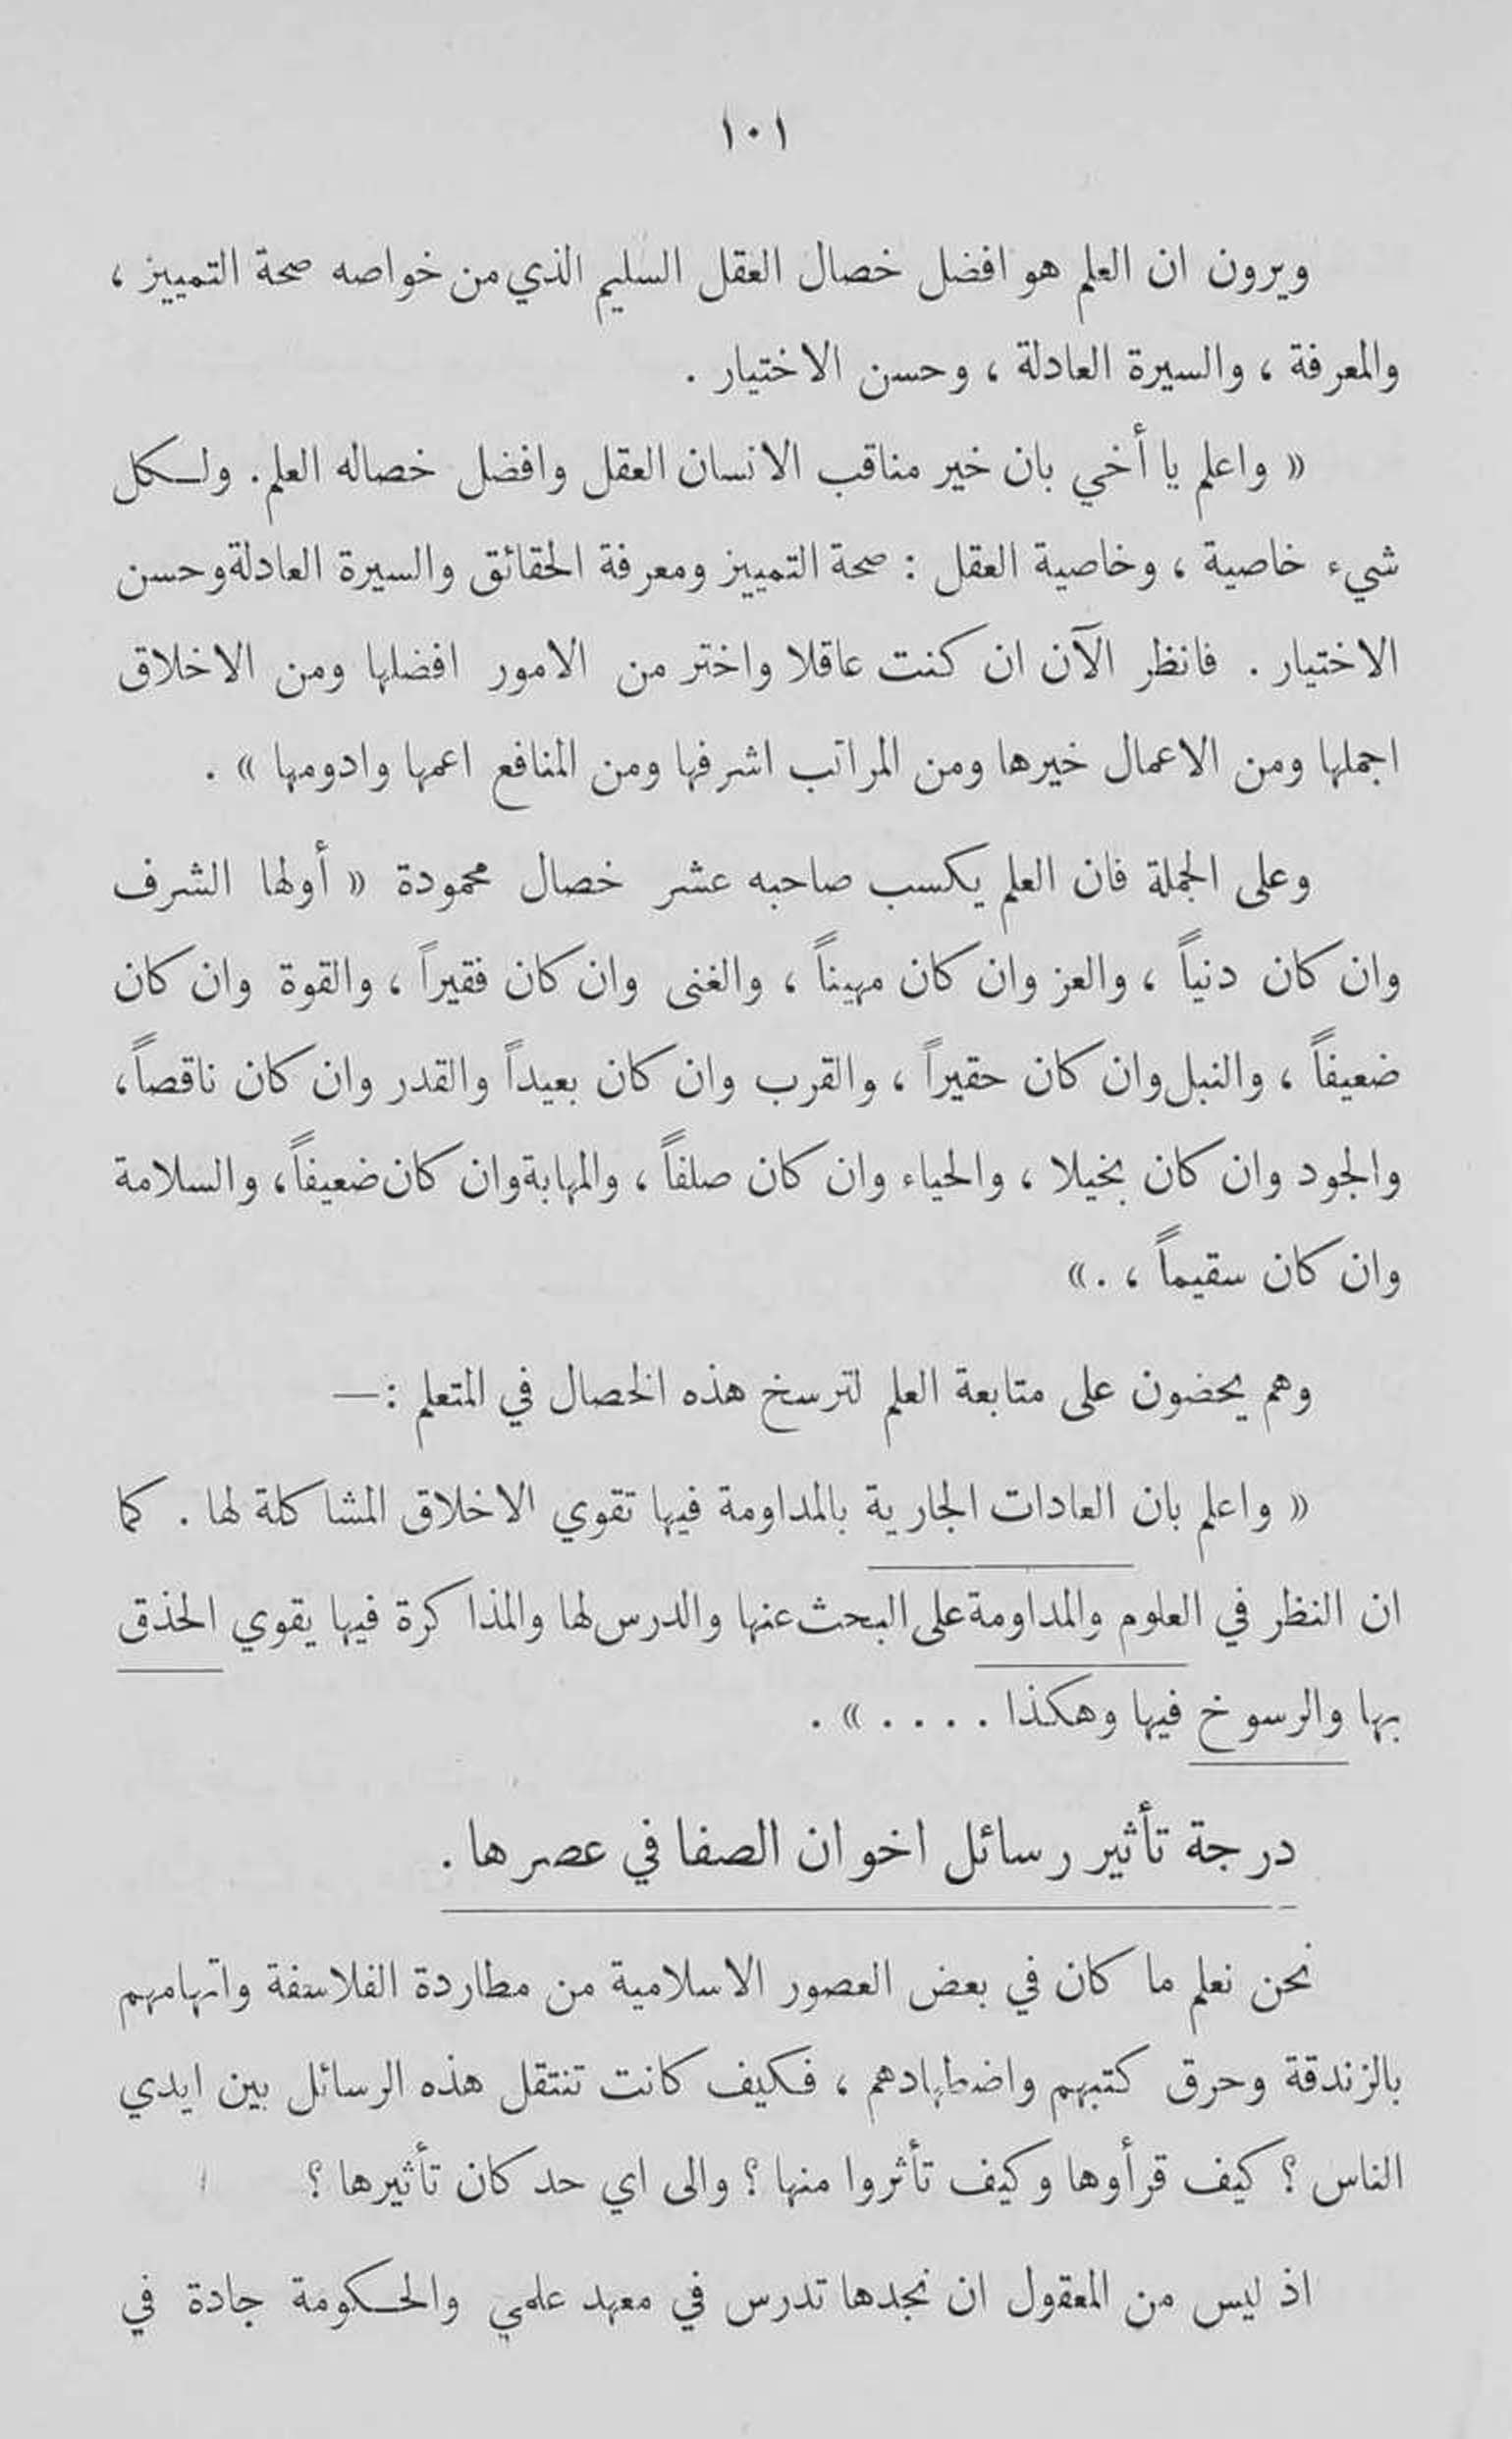 ١٠١
ويرون ان العلم هو افضل خصال العقل السليم الذي من خواصه صحة التمييز ،
والمعرفة ، والسيرة العادلة ، وحسن الاختيار .
« واعلم يا أخي بان خير مناقب الانسان العقل وافضل خصاله العلم . ولكل
شيء خاصية ، وخاصية العقل : صحة التمييز ومعرفة الحقائق والسيرة العادلة وحسن
الاختيار . فانظر الآن ان كنت عاقلا واختر من الامور افضلها ومن الاخلاق
اجملها ومن الاعمال خيرها ومن المراتب اشرفها ومن المنافع اعمها وادومها » .
وعلى الجملة فان العلم يكسب صاحبه عشر خصال محمودة « أولها الشرف
وان كان دنياً ، والعز وان كان مهيناً ، والغنى وان كان فقيراً ، والقوة وان كان
ضعيفاً ، والنبل وان كان حقيراً ، والقرب وان كان بعيداً والقدر وان كان ناقصاً ،
والجود وان كان بخيلا ، والحياء وان كان صلفاً ، والمهابة وان كان ضعيفاً ، والسلامة
وان كان سقيماً ، . »
وهم يحضون على متابعة العلم لترسخ هذه الخصال في المتعلم :—
« واعلم بان العادات الجارية بالمداومة فيها تقوي الاخلاق المشاكلة لها . كما
ان النظر في العلوم والمداومة على البحث عنها والدرس لها والمذاكرة فيها يقوي الحذق
بها والرسوخ فيها وهكذا . . . . » .
درجة تأثير رسائل اخوان الصفا في عصرها .
نحن نعلم ما كان في بعض العصور الاسلامية من مطاردة الفلاسفة واتهامهم
بالزندقة وحرق كتبهم واضطهادهم ، فكيف كانت تنتقل هذه الرسائل بين ايدي
الناس ؟ كيف قرأوها وكيف تأثروا منها ؟ والى اي حد كان تأثيرها ؟
اذ ليس من المعقول ان نجدها تدرس في معهد علمي والحكومة جادة في